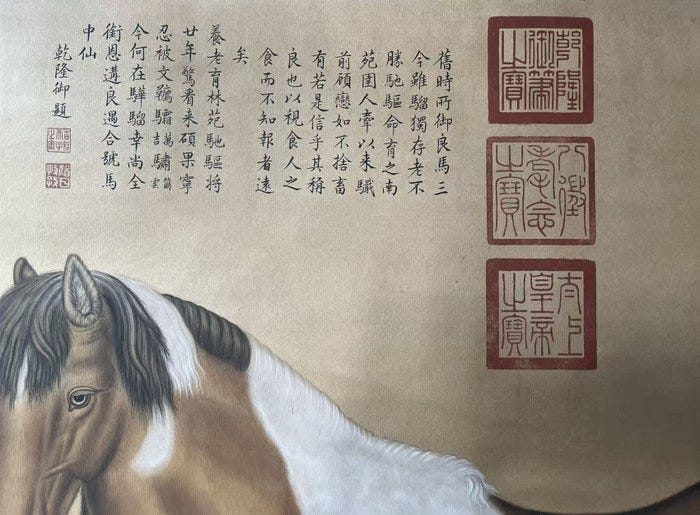 乾隆御筆之寶
八徵耄念之寶
太上皇帝之寶
舊時所御良馬三
今雖騮獨存老不
勝馳驅命育之南
苑圉人牽以来
前顧戀如不捨畜
有若是信乎其稱
良也以視食人之
食而不知報者遠
矣
養老育林苑馳驅将
廿年驚看来碩果寧
忍被文韉驌萬吉驌雲
今何在驊騮幸尚全
銜恩遘良遇合號馬
中仙
乾隆御題